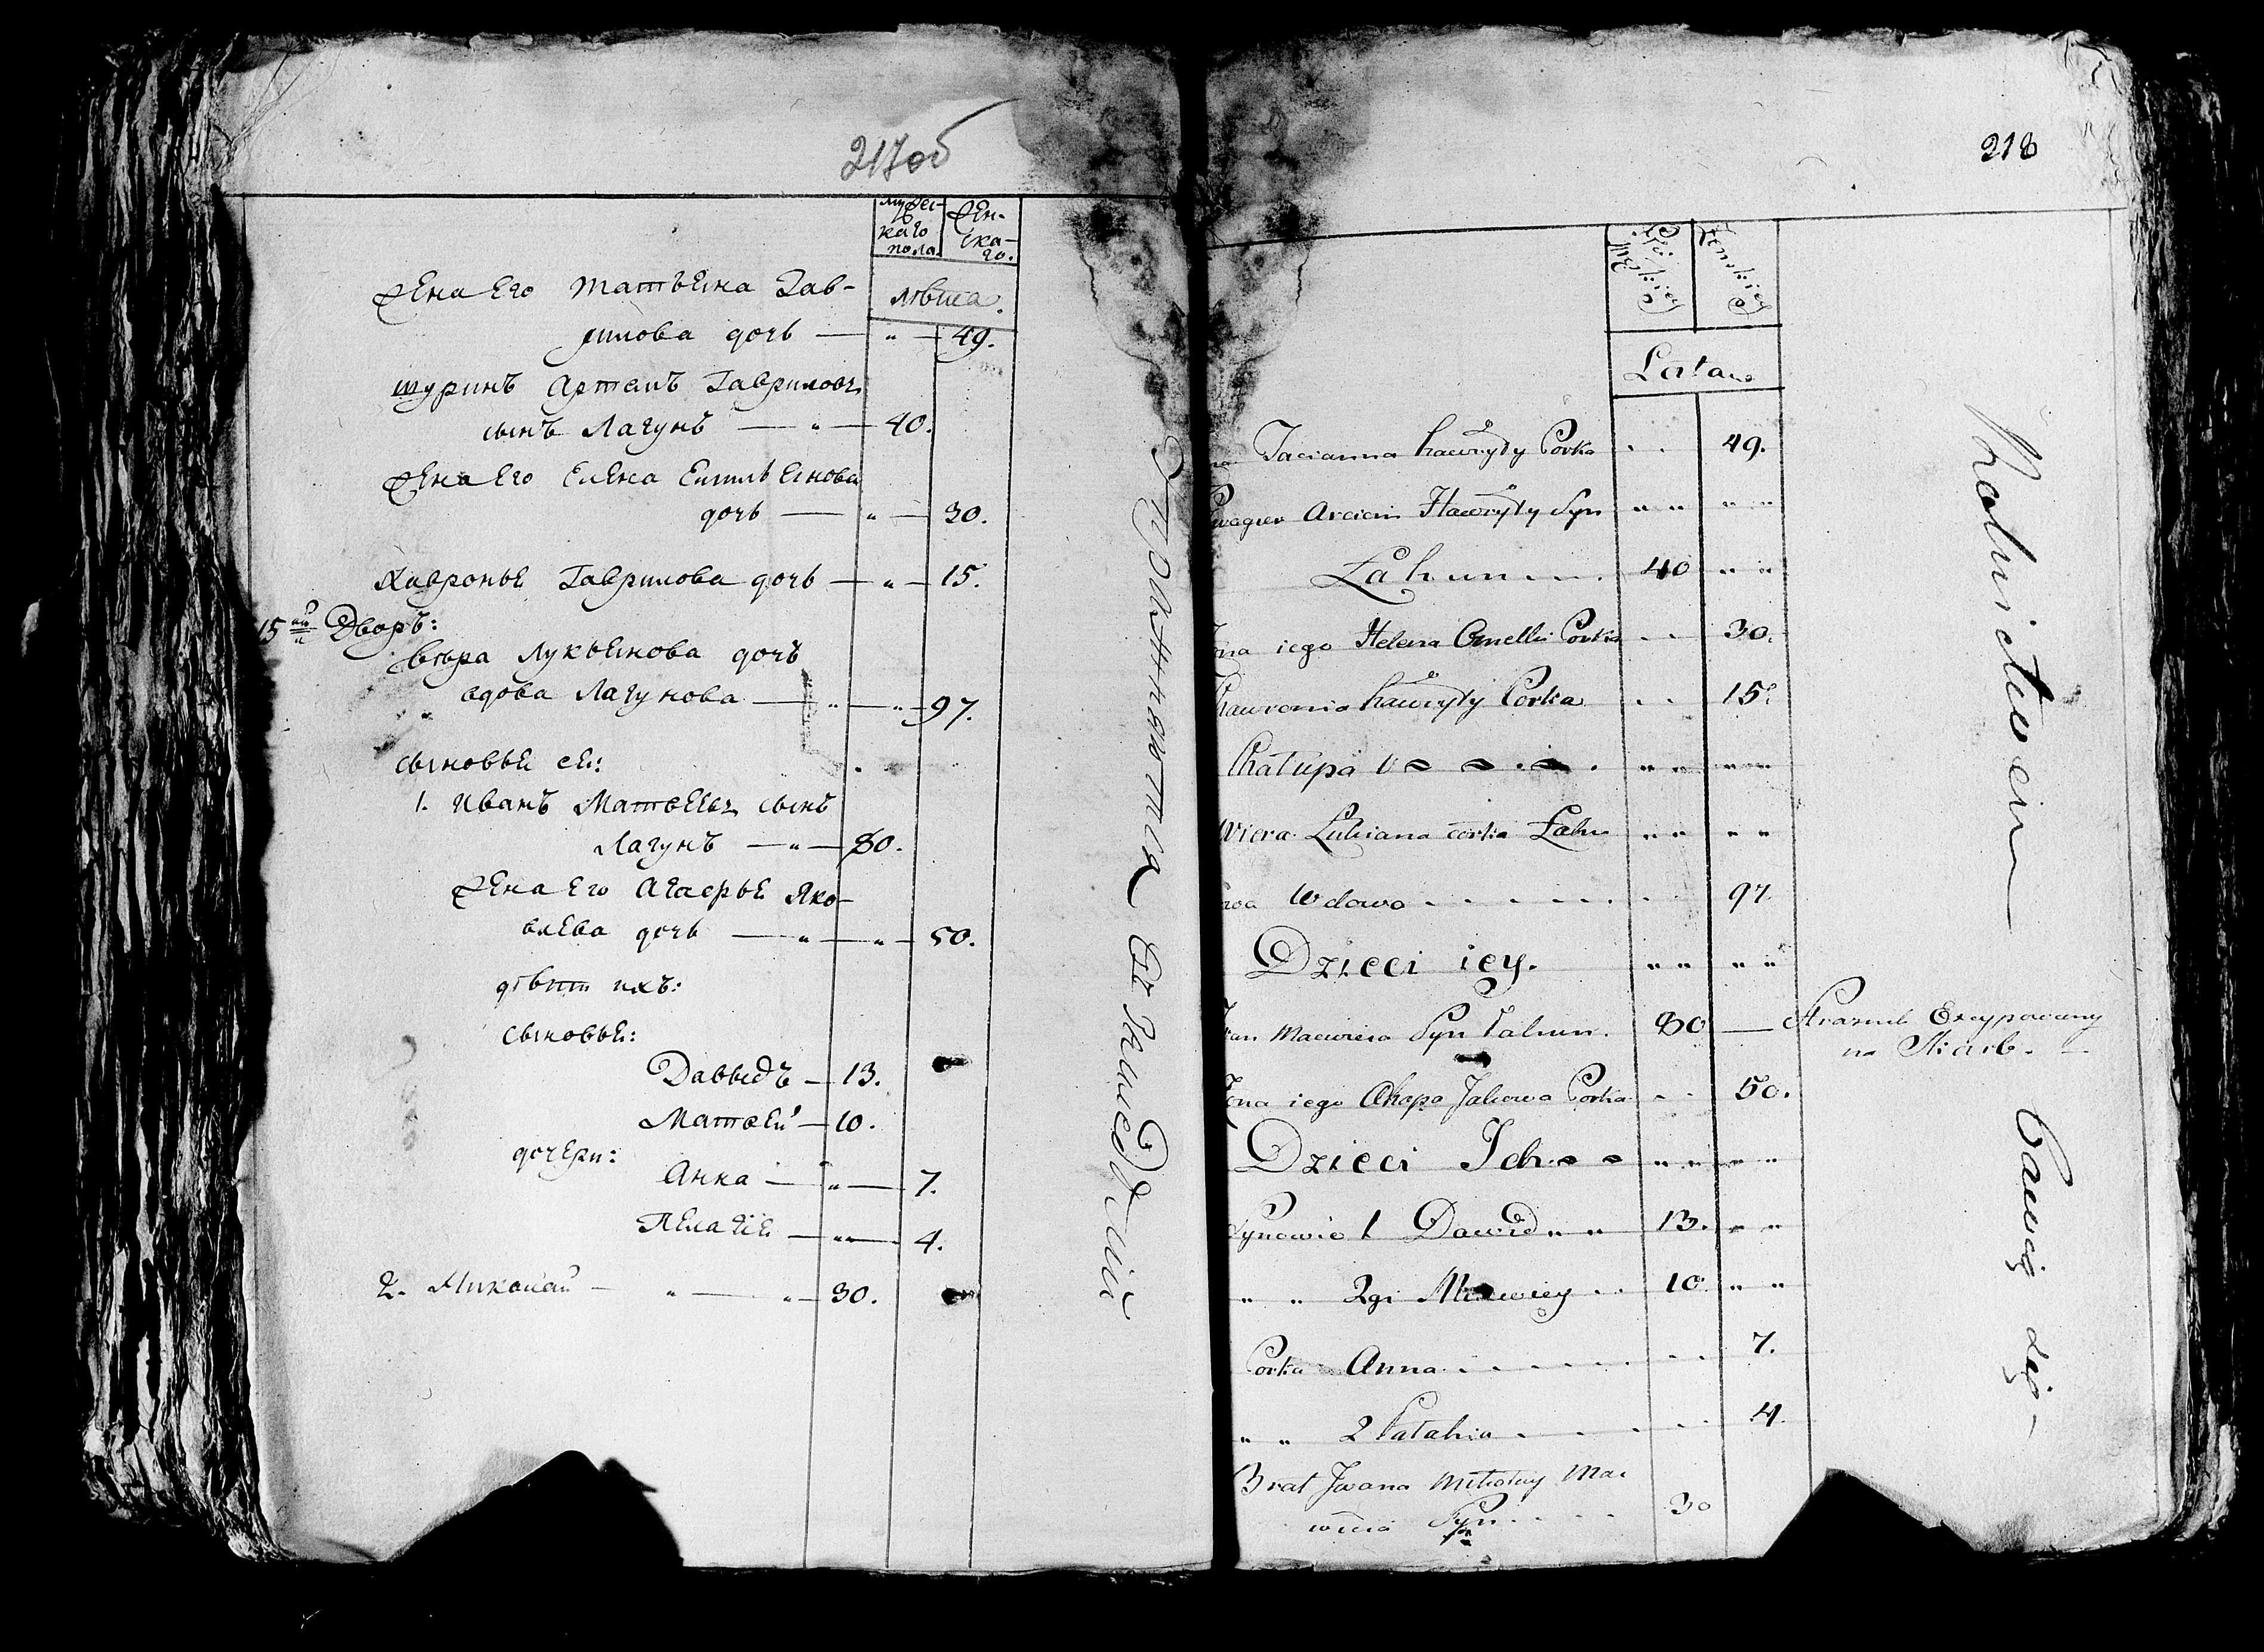 217об
мужес-
каго
пола.
жен-
ска-
го.
лѣта.
жена его татьяна Гав-
рилова дочь — " — 49.
шуринъ Артемъ Гавриловъ
сынъ Лагунъ — " — 40.
жена его Елена Емильянова
дочь — " — 30.
Хавронья Гаврилова дочь — " — 15.
15й Дворъ:
Вѣра Лукьянова дочь
вдова Лагунова — " — " — 97.
сыновья ея:
1. Иванъ Матвеевъ сынъ
Лагунъ — " — 80.
жена его Агафья Яко-
влева дочь — " — " — 50.
дѣти ихъ:
сыновья:
Давыдъ — 13.
Матвей — 10.
дочери:
Анна — " — 7.
Пелагiя — " " — 4.
2. Николай — " — " — 30.
218
Płci
Męskiey
Zenskiey
Lata
Tacianna hawryły Corka . . 49.
Arciem Hawryły Syn " " " "
Łahun . . . 40 " "
iego Helena Omelli Corka . . 30.
hawronia hawryły Corka . . 15.
Chałupa
Wiera Lukiana Corka Łahu " " " "
Wdowa . . . . . 97
Dzieci iey. " " " "
Maciveia Syn Łahun. 80 —
na Skarb. —
Zona iego Ahapa Jakowa Corka . . 50.
Dzieci Ich " " " "
Synowie 1 Dawid " " 13. " "
" " 2gi Maciwiey . . 10. " "
Corka Anna . . . . . 7.
" " 2 Pałahia . . . . 4.
Brat Jwana Mikołay Mac
wieia Syn . . . . 30